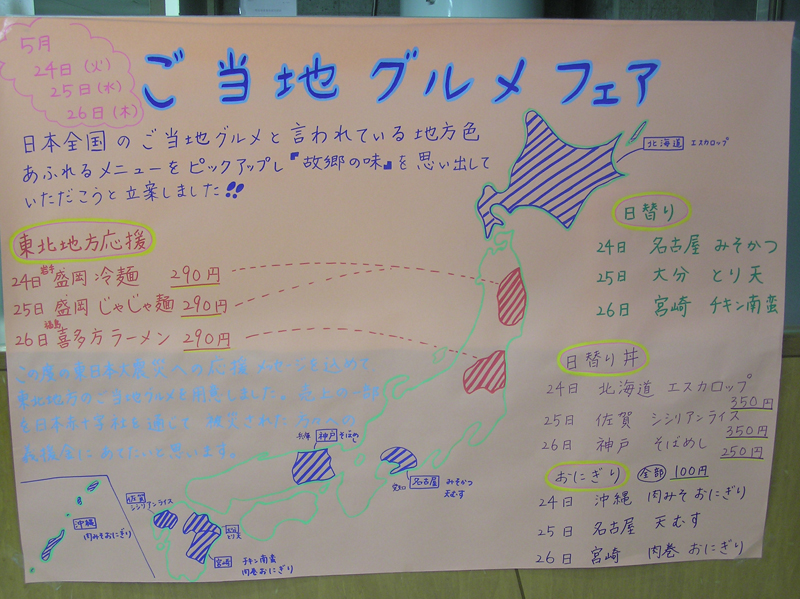 5月
24日（火）
25日（水）
26日（木）
ご当地グルメフェア
日本全国のご当地グルメと言われている地方色
あふれるメニューをピックアップし『故郷の味』を思い出して
いただこうと立案しました!!
東北地方応援
24日 岩手 盛岡 冷麺 290円
25日 盛岡 じゃじゃ麺 290円
26日 福島 喜多方ラーメン 290円
この度の東日本大震災への応援メッセージを込めて
東北地方のご当地グルメを用意しました。売上の一部
を日本赤十字社を通じて 被災された方々への
義援金にあてたいと思います。
北海道 エスカロップ
日替り
24日 名古屋 みそかつ
25日 大分 とり天
26日 宮崎 チキン南蛮
日替り丼
24日 北海道 エスカロップ
350円
25日 佐賀 シシリアンライス
350円
26日 神戸 そばめし
250円
おにぎり 全部 100円
24日 沖縄 肉みそおにぎり
25日 名古屋 天むす
26日 宮崎 肉巻おにぎり
兵庫 神戸 そばめし
愛知 名古屋 みそかつ
天むす
佐賀
シシリアンライス
大分
とり天
宮崎 チキン南蛮
肉巻おにぎり
沖縄
肉みそおにぎり